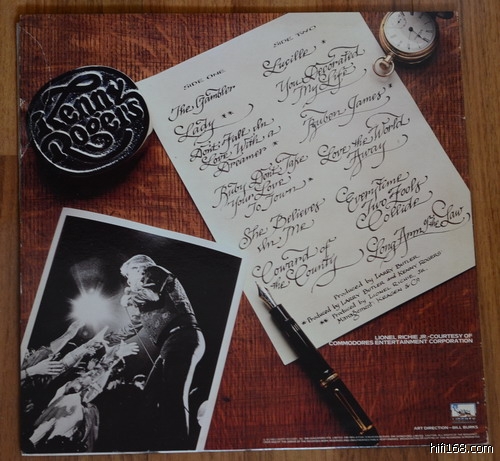 Kenny
Rogers
SIDE ONE
The Gambler
Lady **
Don't Fall In
Love With a
Dreamer *
Ruby Don't Take
Your Love
To Town *
She Believes
In Me
Coward of
the County
SIDE TWO
Lucille *
You Decorated
My Life
Reuben James *
Love the World
Away
Everytime
Two Fools
Collide
Long Arm of the Law
Produced by Larry Butler
* Produced by Larry Butler and Kenny Rogers
** Produced by Lionel Richie Jr.
Management: Kragen & Co
LIONEL RICHIE JR.-COURTESY OF
COMMODORES ENTERTAINMENT CORPORATION
LIBERTY
ART DIRECTION—BILL BURKS
hifi168.com